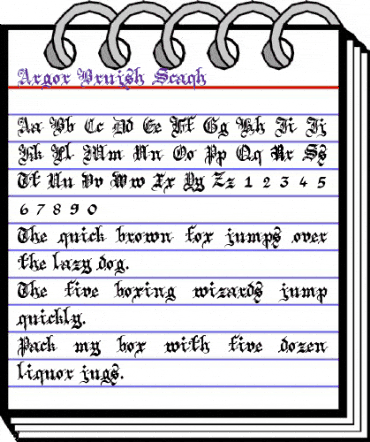 Argor Brujsh Scaqh
Aa Bb Cc Dd Ee Ff Gg Hh Ii Jj
Kk Ll Mm Nn Oo Pp Qq Rr Ss
Tt Uu Vv Ww Xx Yy Zz 1 2 3 4 5
6 7 8 9 0
The quick brown fox jumps over
the lazy dog.
The five boxing wizards jump
quickly.
Pack my box with five dozen
liquor jugs.